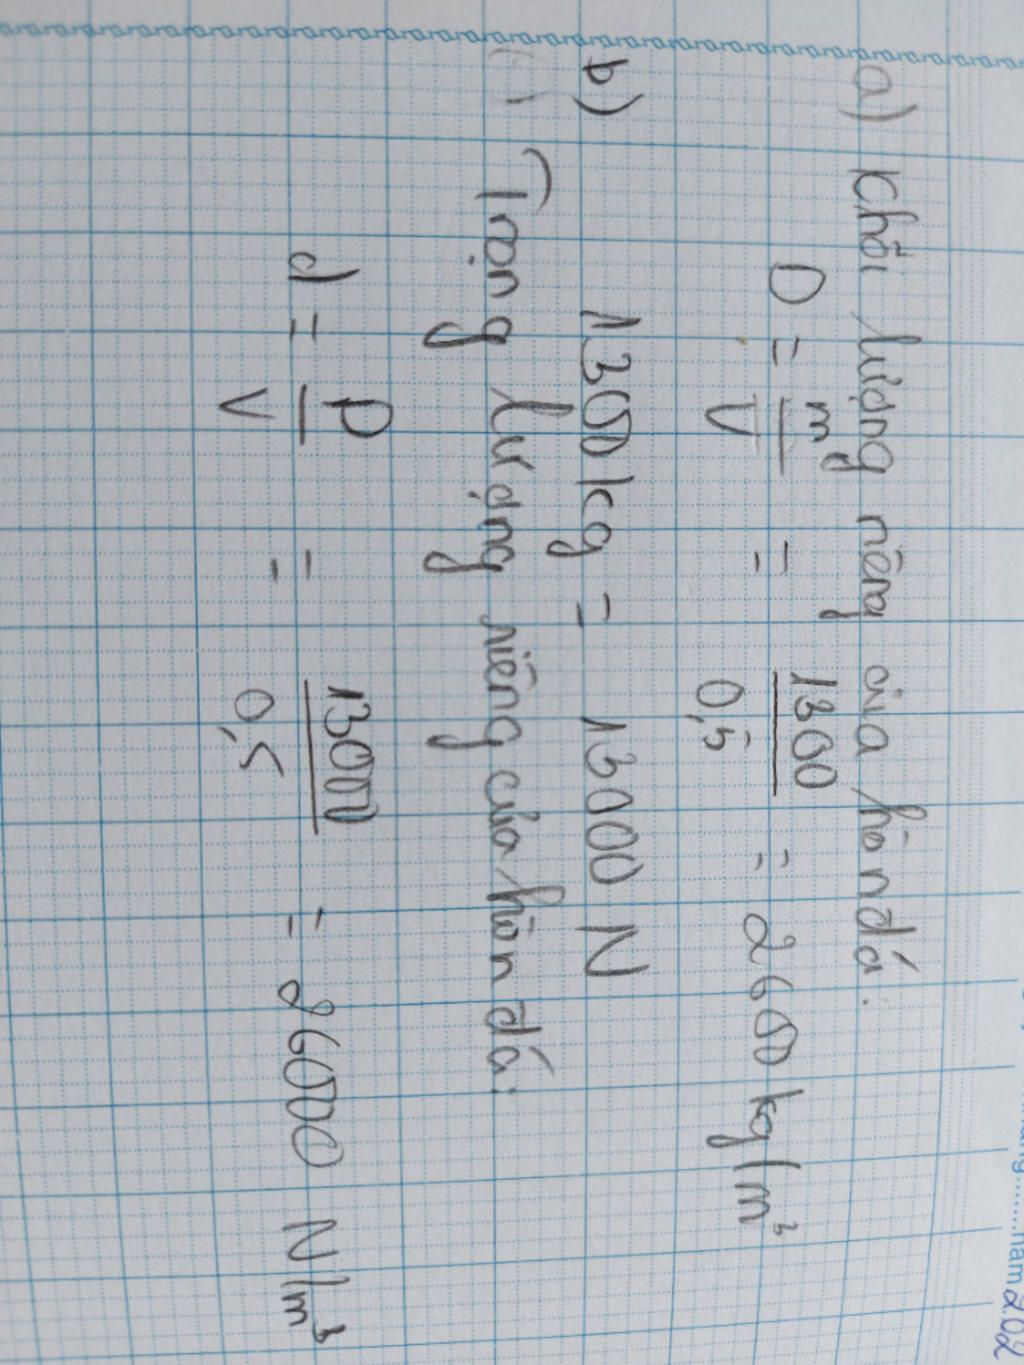 a) Khối lượng riêng của hòn đá.
D = m/V = 1300/0,5 = 2600 kg/m³
b) 1300 kg = 13000 N
Trọng lượng riêng của hòn đá:
d = P/V = 13000/0,5 = 26000 N/m³